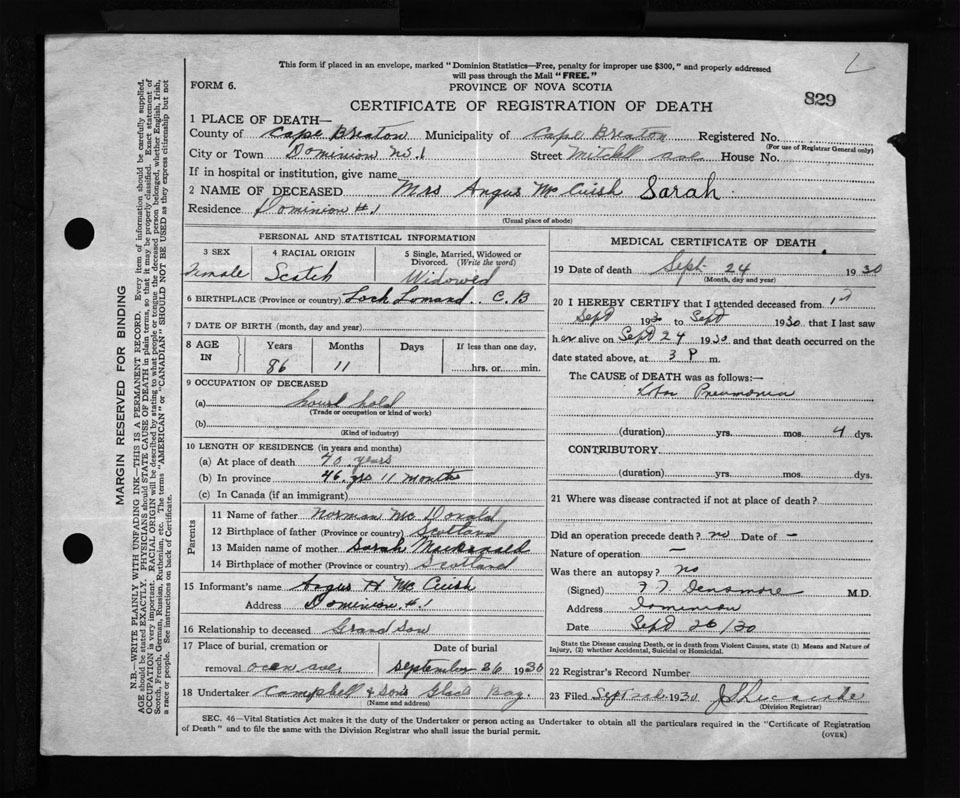 This form if placed in an envelope, marked "Dominion Statistics—Free, penalty for improper use $300," and properly addressed
will pass through the Mail "FREE."
FORM 6.
PROVINCE OF NOVA SCOTIA
829
CERTIFICATE OF REGISTRATION OF DEATH
1 PLACE OF DEATH—
County of Cape Breton Municipality of Cape Breton Registered No.
(For use of Registrar General only)
City or Town Dominion No. 1 Street Mitchell Ave House No.
If in hospital or institution, give name
2 NAME OF DECEASED Mrs Angus McCuish Sarah
Residence Dominion #1
(Usual place of abode)
PERSONAL AND STATISTICAL INFORMATION
3 SEX 4 RACIAL ORIGIN 5 Single, Married, Widowed or
Divorced. (Write the word)
Female Scotch Widowed
6 BIRTHPLACE (Province or country) Loch Lomand. C. B
7 DATE OF BIRTH (month, day and year)
8 AGE IN Years Months Days If less than one day,
86 11 hrs. or min.
9 OCCUPATION OF DECEASED
(a) house hold
(Trade or occupation or kind of work)
(b)
(Kind of industry)
10 LENGTH OF RESIDENCE (in years and months)
(a) At place of death 40 years
(b) In province 86 yrs 11 months
(c) In Canada (if an immigrant)
Parents
11 Name of father Norman McDonald
12 Birthplace of father (Province or country) Scotland
13 Maiden name of mother Sarah Macdonald
14 Birthplace of mother (Province or country) Scotland
15 Informant's name Angus H McCuish
Address Dominion #.1
16 Relationship to deceased Grand Son
17 Place of burial, cremation or Date of burial
removal ocean ave September 26 1930
18 Undertaker Campbell & Sons Glace Bay
(Name and address)
MEDICAL CERTIFICATE OF DEATH
19 Date of death Sept 24 1930
(Month, day and year)
20 I HEREBY CERTIFY that I attended deceased from
Sept 1930 to Sept 1930 that I last saw
her alive on Sept 24 1930 and that death occurred on the
date stated above, at 3 P m.
The CAUSE of DEATH was as follows:—
Lobar Pneumonia
(duration) yrs. mos. 4 dys.
CONTRIBUTORY
(duration) yrs. mos. dys.
21 Where was disease contracted if not at place of death?
Did an operation precede death? no Date of —
Nature of operation —
Was there an autopsy? no
(Signed) Densmore M.D.
Address Dominion
Date Sept 26/30
State the Disease causing Death, or in death from Violent Causes, state (1) Means and Nature of
Injury, (2) whether Accidental, Suicidal or Homicidal.
22 Registrar's Record Number
23 Filed Sept 1930
(Division Registrar)
SEC. 46—Vital Statistics Act makes it the duty of the Undertaker or person acting as Undertaker to obtain all the particulars required in the "Certificate of Registration
of Death" and to file the same with the Division Registrar who shall issue the burial permit.
(OVER)
MARGIN RESERVED FOR BINDING
N.B.—WRITE PLAINLY WITH UNFADING INK—THIS IS A PERMANENT RECORD. Every item of information should be carefully supplied.
AGE should be stated EXACTLY. PHYSICIANS should STATE CAUSE OF DEATH in plain terms, so that it may be properly classified. Exact statement of
OCCUPATION is very important. RACIAL ORIGIN will be described by stating to what people or tongue the deceased person belonged, whether English, Irish,
Scotch, French, German, Russian, Ruthenian, etc. The terms "AMERICAN" or "CANADIAN" SHOULD NOT BE USED as they express citizenship but not
a race or people. See instructions on back of Certificate.